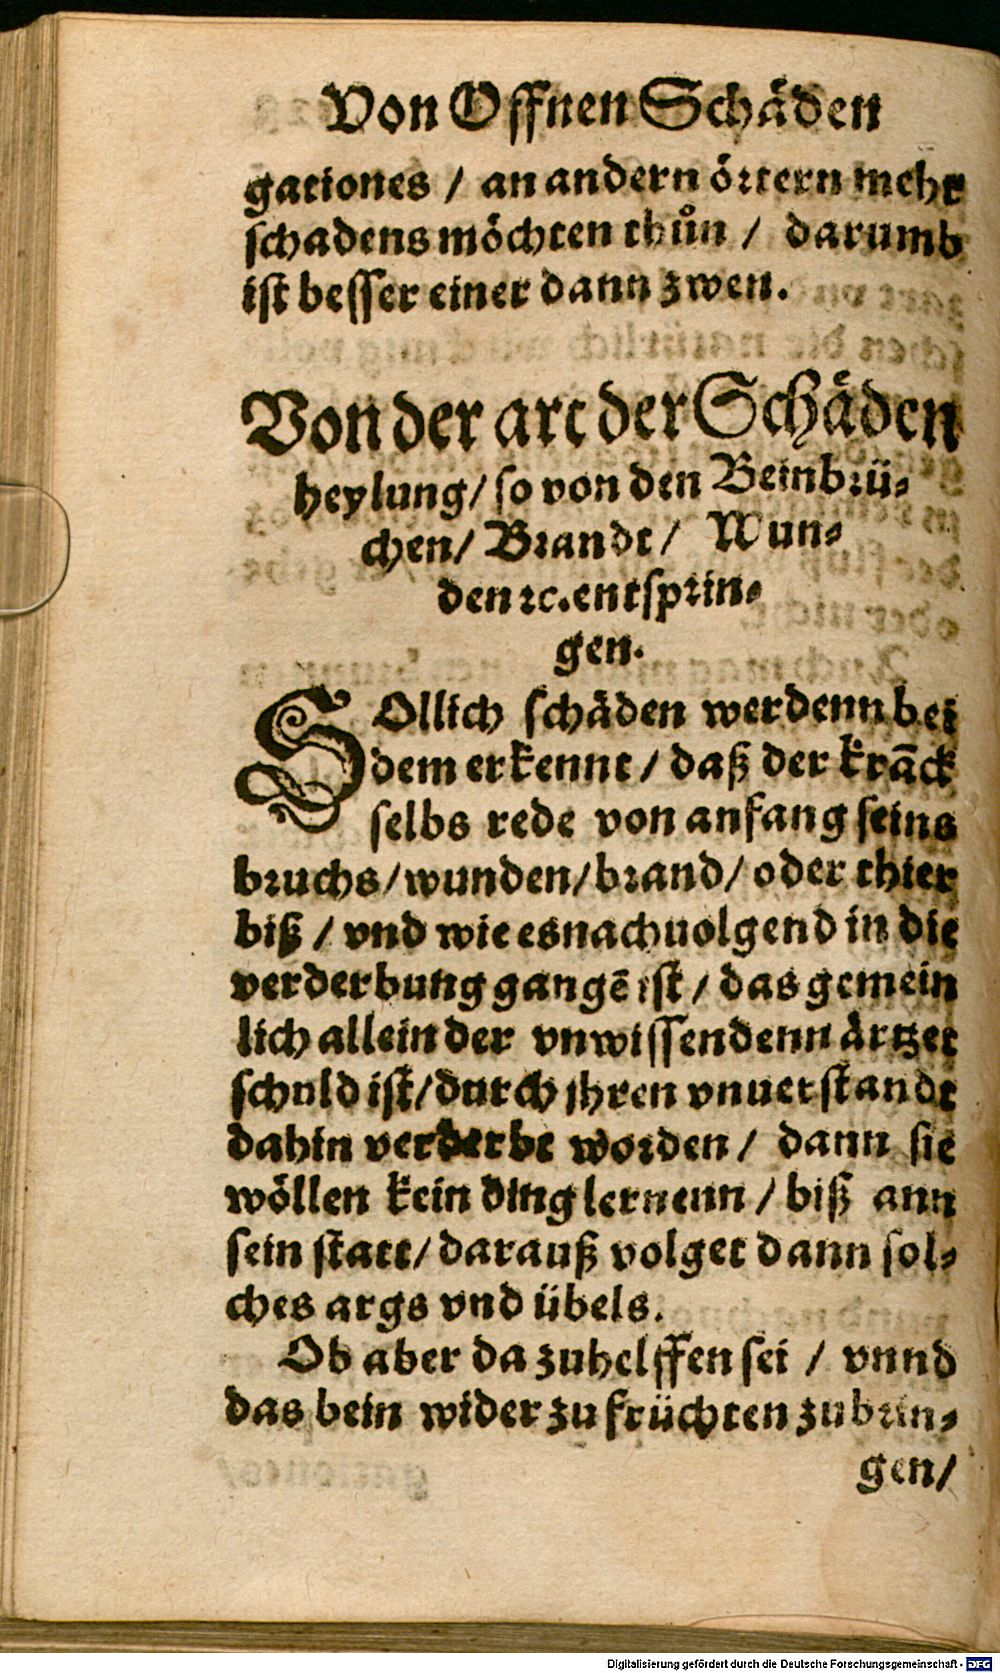 Von Offnen Schäden
gationes / an andern örtern mehr
schadens möchten thůn / darumb
ist besser einer dann zwen.
Von der art der Schäden
heylung / so von den Beinbrü⸗
chen / Brandt / Wun⸗
den ꝛc. entsprin⸗
gen.
SOllich schäden werdenn bei
dem erkennt / daß der krāck
selbs rede von anfang seins
bruchs / wunden / brand / oder thier
biß / vnd wie es nachuolgend in die
verderbung gangē ist / das gemein
lich allein der vnwissendenn ärtzet
schuld ist / durch jhren vnuerstandt
dahin verderbt worden / dann sie
wöllen kein ding lernenn / biß ann
sein statt / darauß volget dann sol⸗
ches args vnd übels.
Ob aber da zuhelffen sei / vnnd
das bein wider zu früchten zubrin⸗
gen /
Digitalisierung gefördert durch die Deutsche Forschungsgemeinschaft - DFG